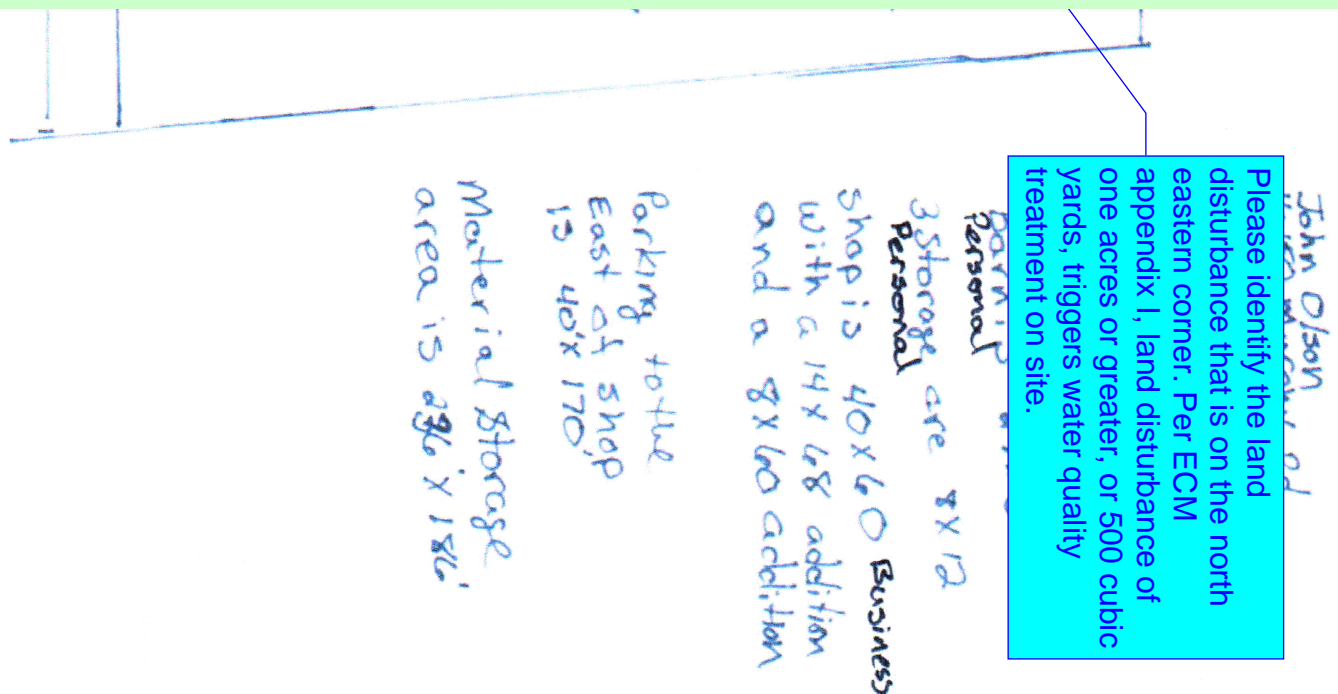 John Olson
Rd
Please identify the land
disturbance that is on the north
eastern corner. Per ECM
appendix I, land disturbance of
one acres or greater, or 500 cubic
yards, triggers water quality
treatment on site.
Personal
3 Storage are 8x12
Personal
Shop is 40x60 Business
with a 14x68 addition
and a 8x60 addition
Parking to the
East of shop
is 40'x170'
Material storage
area is 236'x186'